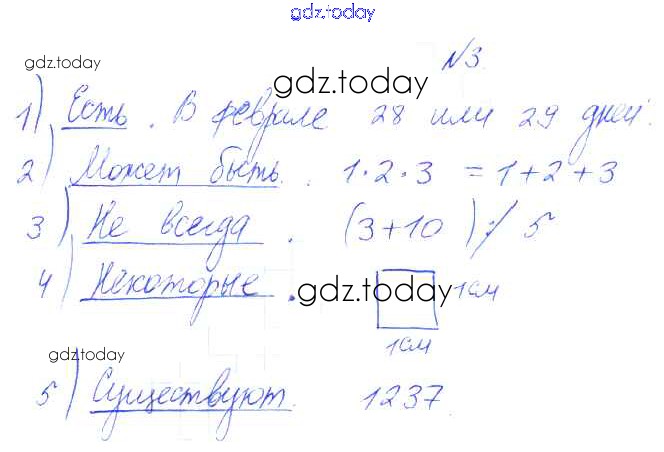 gdz.today
gdz.today
№3.
gdz.today
1) Есть. В феврале 28 или 29 дней.
2) Может быть. 1·2·3 = 1+2+3
3) Не всегда. (3+10) ⁒ 5
4) Некоторые. 1см
gdz.today
1см
gdz.today
5) Существуют. 1237.